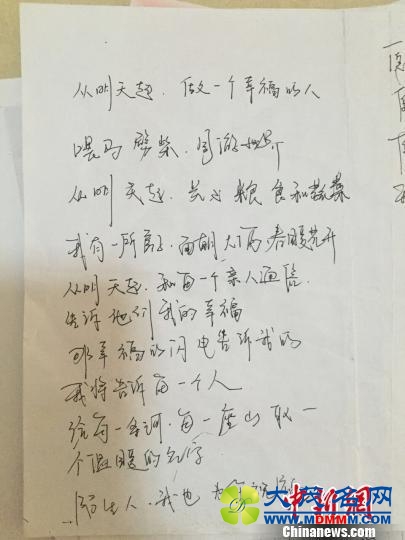 从明天起，做一个幸福的人
喂马 劈柴，周游世界
从明天起，关心粮食和蔬菜
我有一所房子，面朝大海 春暖花开
从明天起，和每一个亲人通信，
告诉他们我的幸福
那幸福的闪电告诉我的
我将告诉每一个人
给每一条河，每一座山取一
个温暖的名字
陌生人，我也为你祝福
中新网
WWW.MDMMM.COM
Chinanews.com